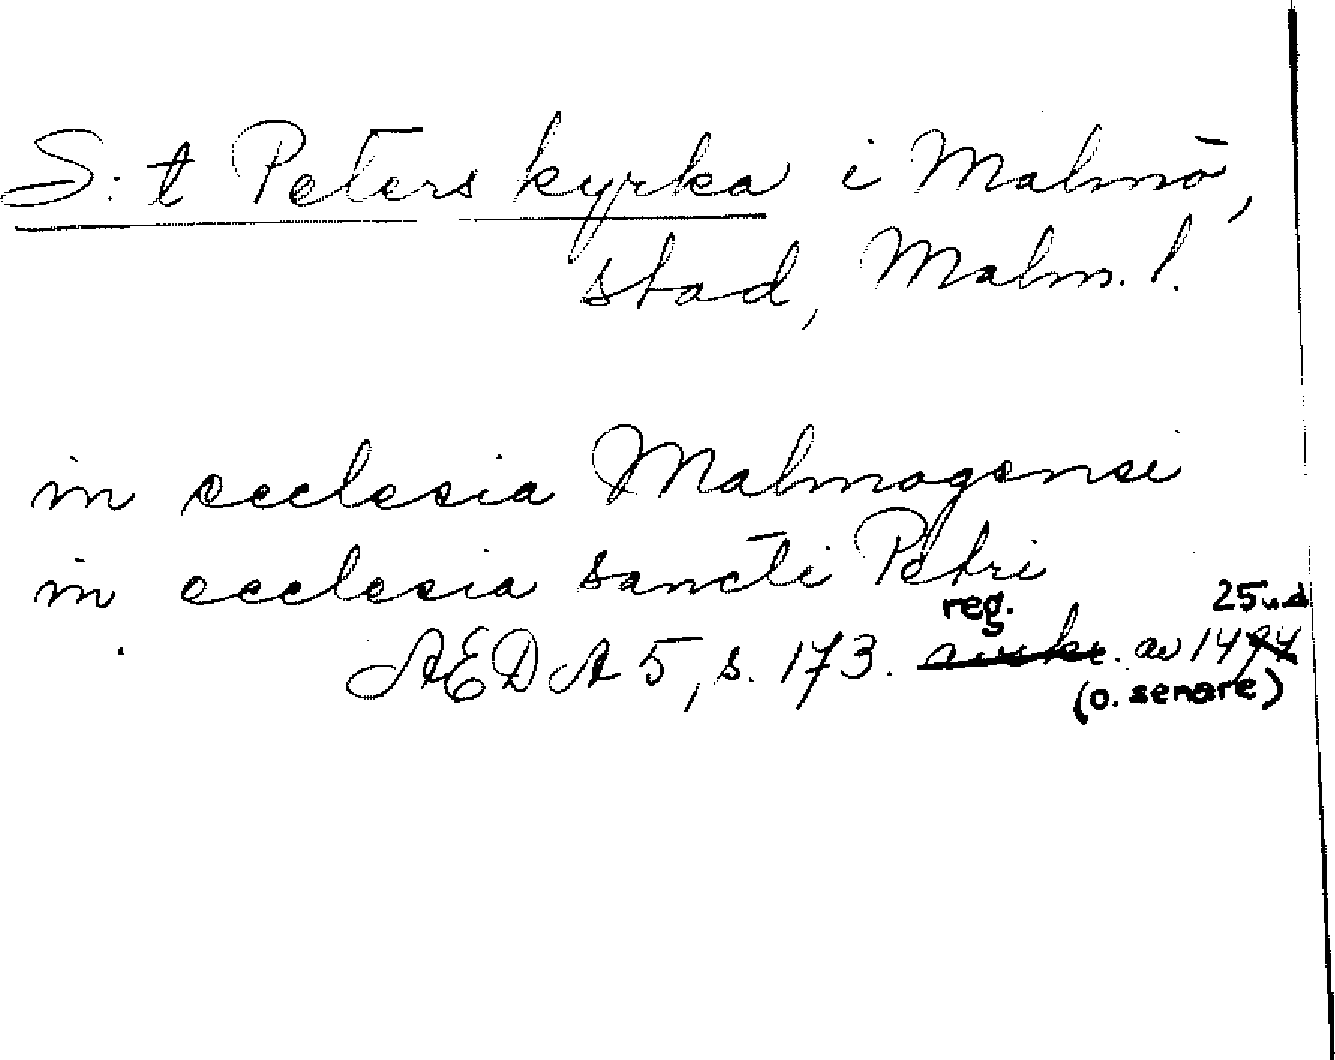 S:t Peters kyrka i Malmö,
stad, Malm. l.
in ecclesia Malmogensi
in ecclesia sancti Petri
reg. 25 u.d
AEDA 5, s. 173. av 1494
(o. senare)